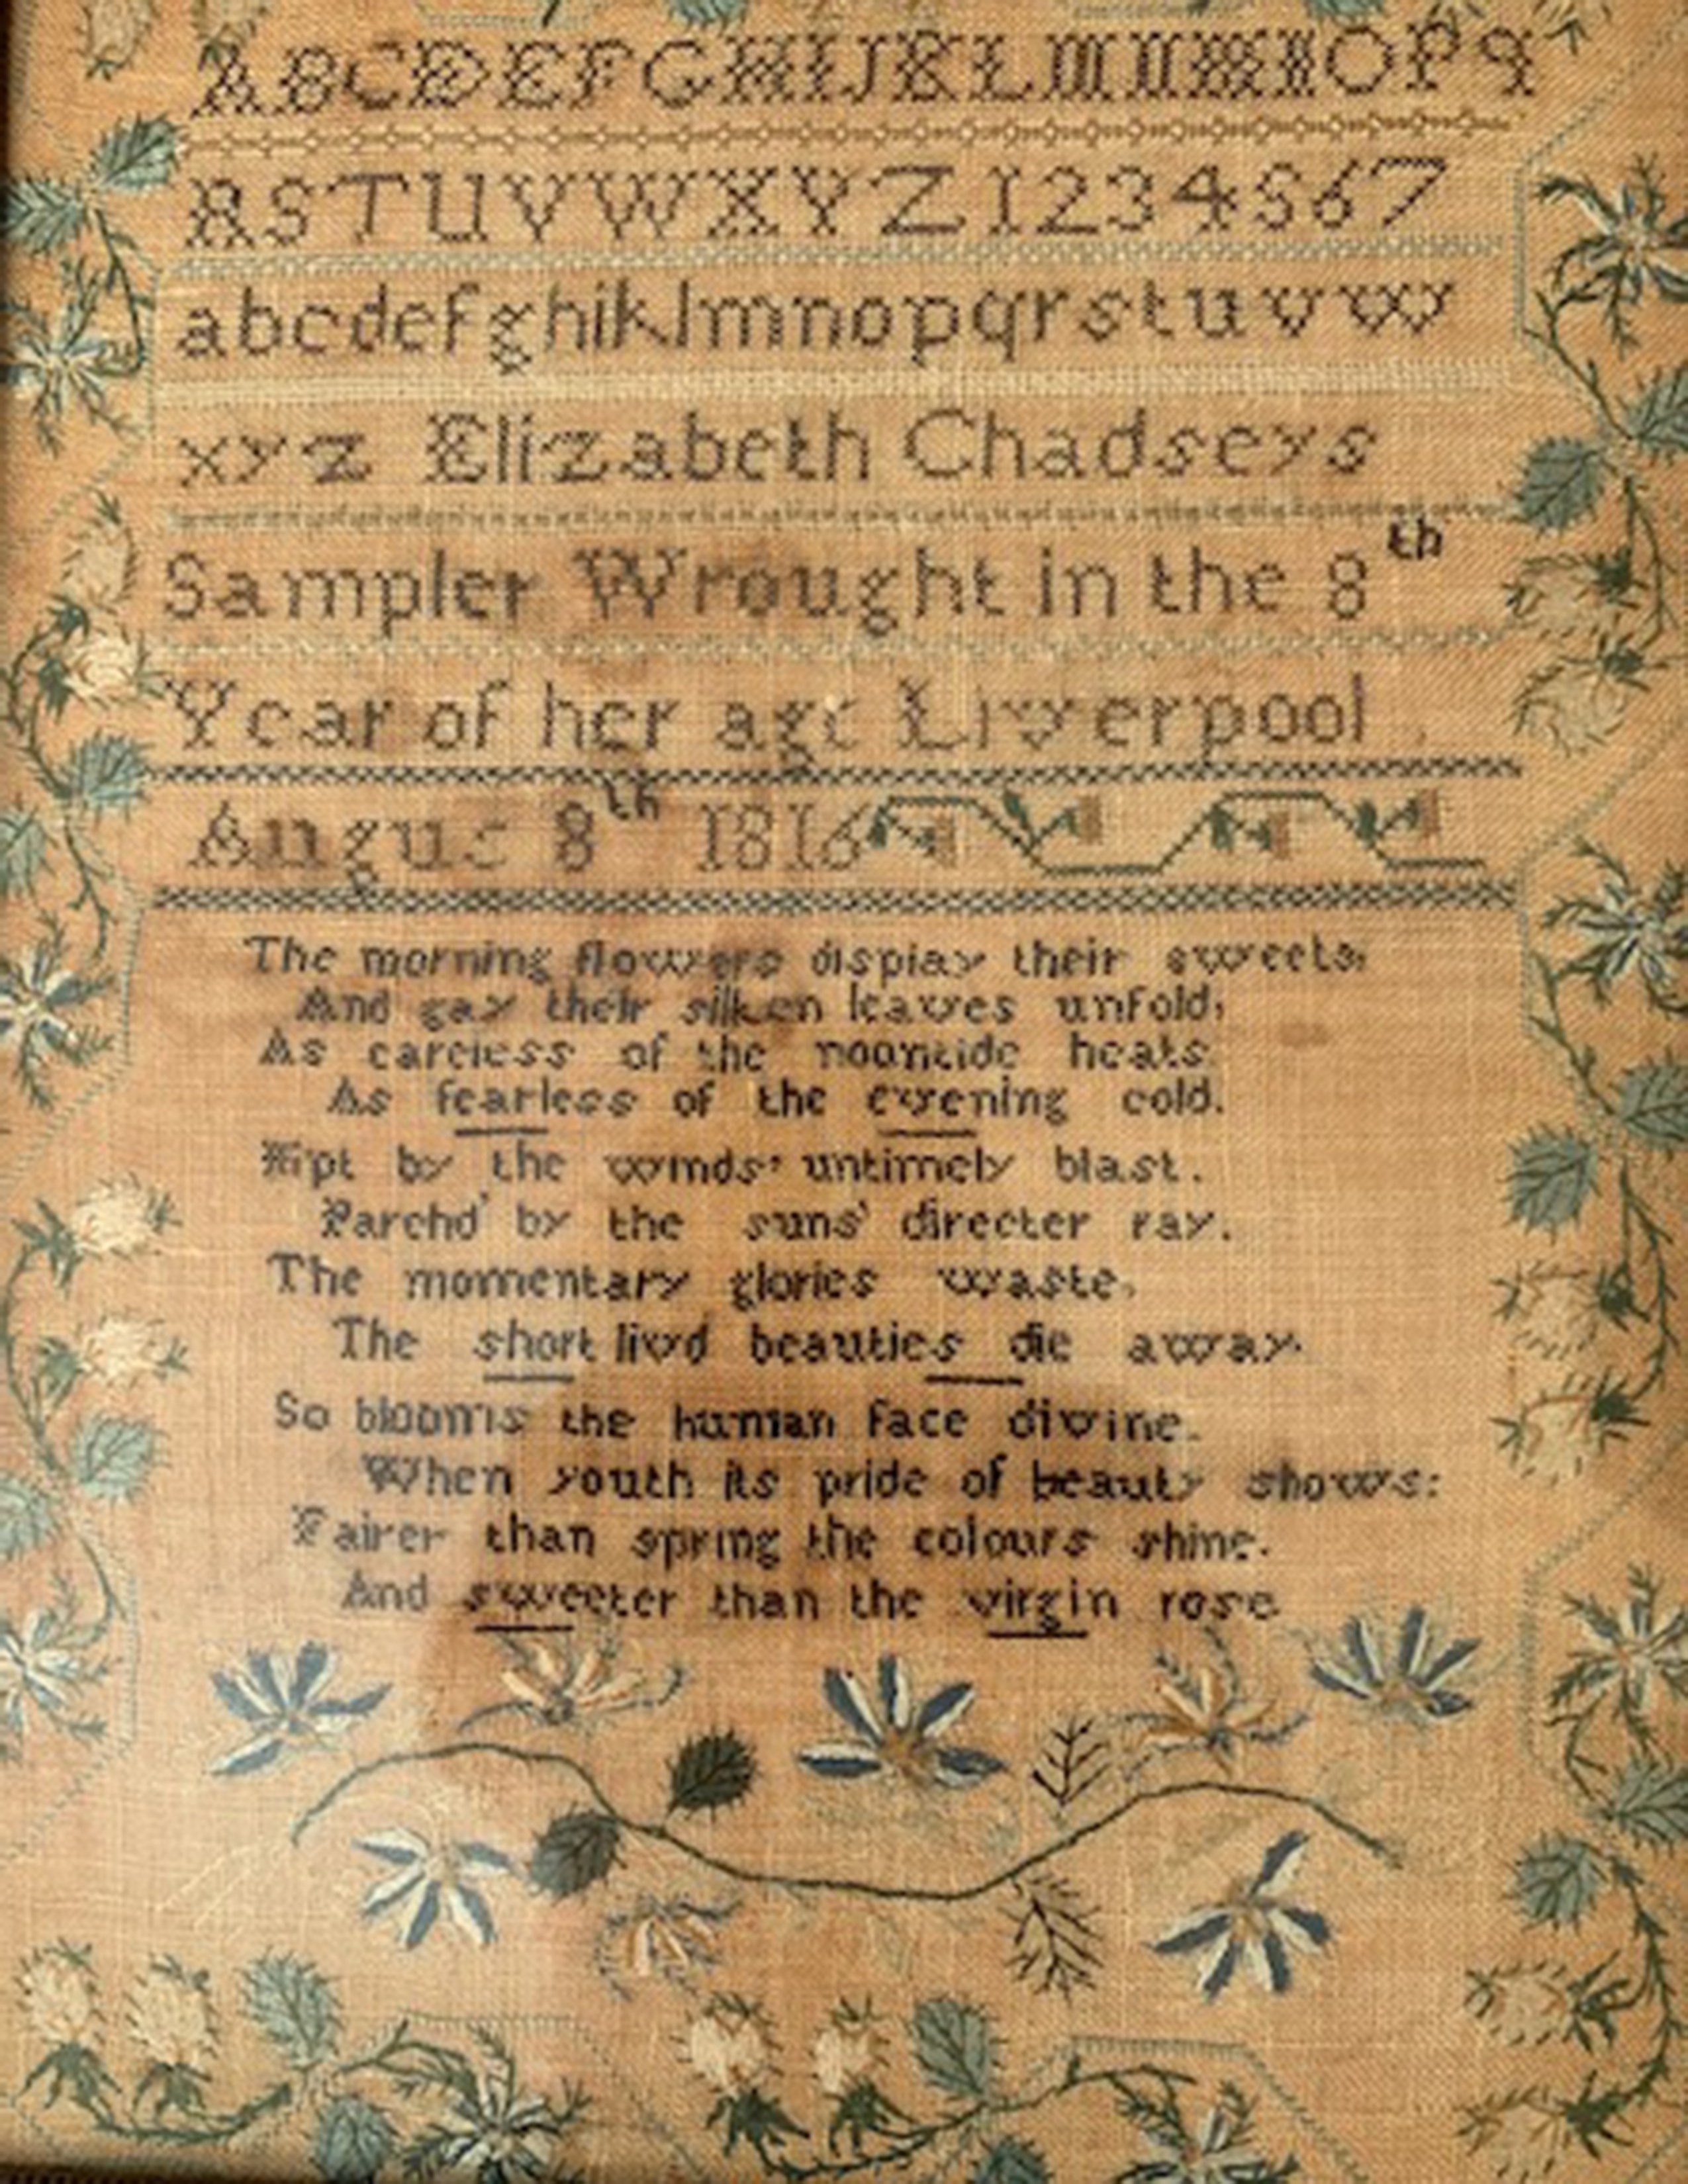 ABCDEFGHIJKLMNOPq
RSTUVWXYZ1234567
abcdefghiklmnopqrstuvw
xyz Elizabeth Chadseys
Sampler Wrought in the 8th
Year of her age Liverpool
Augus 8th 1816
The morning flowers display their sweets,
And gay their silken leaves unfold;
As careless of the noontide heats
As fearless of the evening cold.
Nipt by the winds' untimely blast.
Parchd' by the suns' directer ray.
The momentary glories waste,
The short livd beauties die away.
So blooms the human face divine.
When youth its pride of beauty shows:
Fairer than spring the colours shine.
And sweeter than the virgin rose